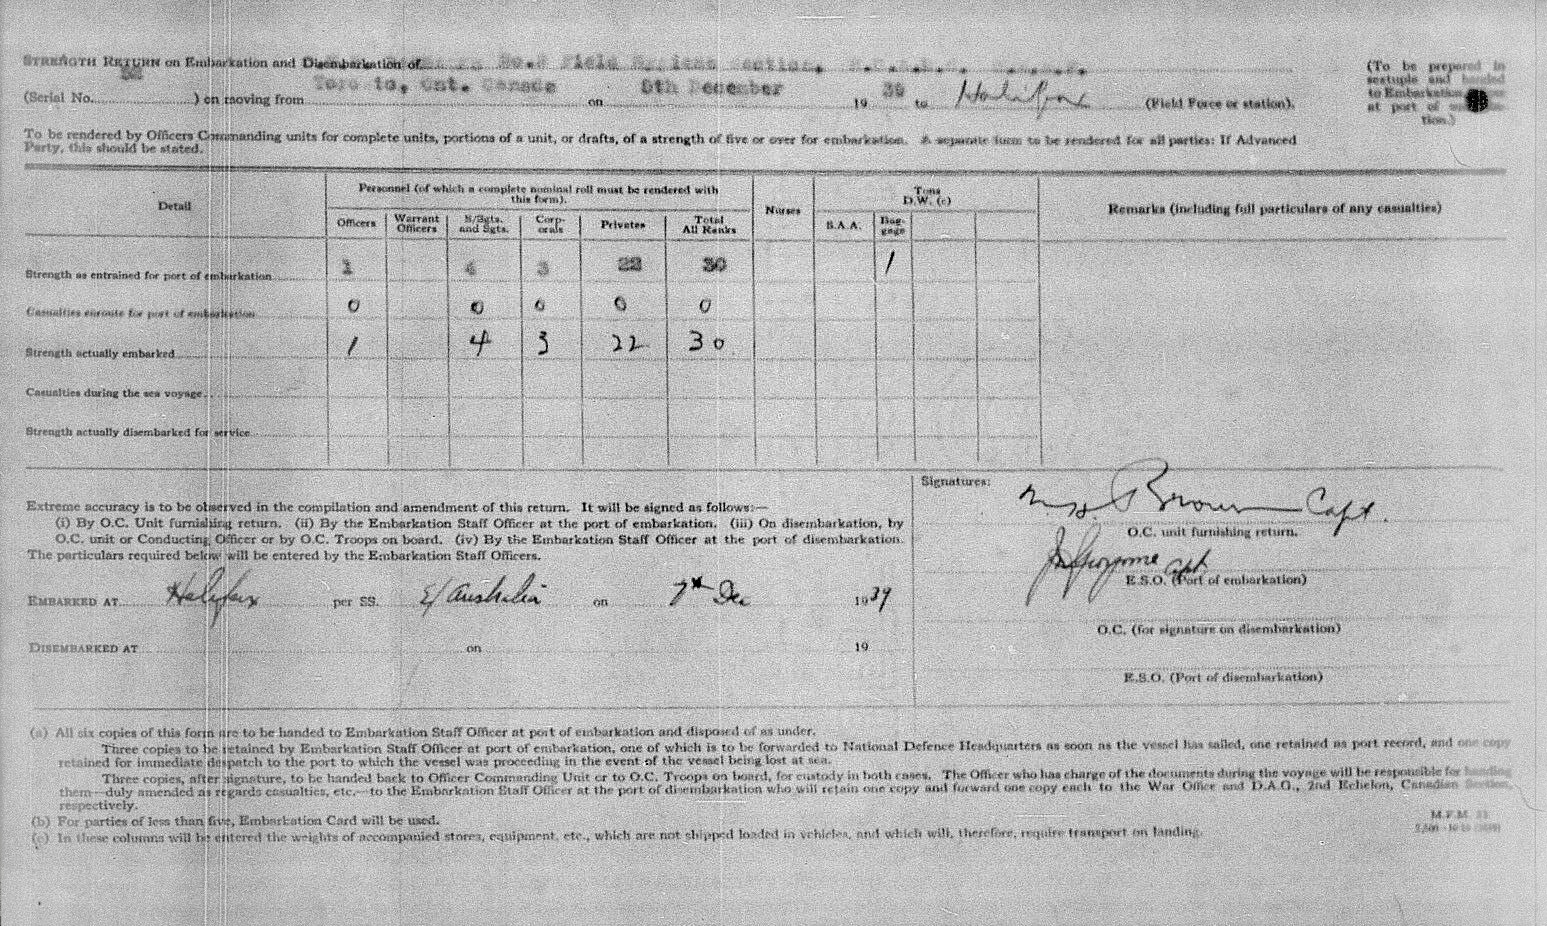 STRENGTH RETURN on Embarkation and Disembarkation of No.2 Field Hygiene Section,
(Serial No. ) on moving from Toronto, Ont. Canada on 6th December 1939 to Halifax (Field Force or station).
(To be prepared in
sextuple and handed
to Embarkation
at port of
tion.)
To be rendered by Officers Commanding units for complete units, portions of a unit, or drafts, of a strength of five or over for embarkation. A separate form to be rendered for all parties: If Advanced
Party, this should be stated.
Detail
Personnel (of which a complete nominal roll must be rendered with
this form).
Officers Warrant Officers S/Sgts. and Sgts. Corporals Privates Total All Ranks
Nurses
Tons
D.W. (c)
S.A.A. Baggage
Remarks (including full particulars of any casualties)
Strength as entrained for port of embarkation 1 4 3 22 30 1
Casualties enroute for port of embarkation 0 0 0 0 0
Strength actually embarked 1 4 3 22 30
Casualties during the sea voyage
Strength actually disembarked for service
Signatures:
Brown Capt.
O.C. unit furnishing return.
Capt
E.S.O. (Port of embarkation)
O.C. (for signature on disembarkation)
E.S.O. (Port of disembarkation)
Extreme accuracy is to be observed in the compilation and amendment of this return. It will be signed as follows:—
(i) By O.C. Unit furnishing return. (ii) By the Embarkation Staff Officer at the port of embarkation. (iii) On disembarkation, by
O.C. unit or Conducting Officer or by O.C. Troops on board. (iv) By the Embarkation Staff Officer at the port of disembarkation.
The particulars required below will be entered by the Embarkation Staff Officers.
EMBARKED AT Halifax per SS. E/Australia on 7th Dec 1939
DISEMBARKED AT on 19
(a) All six copies of this form are to be handed to Embarkation Staff Officer at port of embarkation and disposed of as under.
Three copies to be retained by Embarkation Staff Officer at port of embarkation, one of which is to be forwarded to National Defence Headquarters as soon as the vessel has sailed, one retained as port record, and one copy
retained for immediate despatch to the port to which the vessel was proceeding in the event of the vessel being lost at sea.
Three copies, after signature, to be handed back to Officer Commanding Unit or to O.C. Troops on board, for custody in both cases. The Officer who has charge of the documents during the voyage will be responsible for handing
them—duly amended as regards casualties, etc.—to the Embarkation Staff Officer at the port of disembarkation who will retain one copy and forward one copy each to the War Office and D.A.G., 2nd Echelon, Canadian Section,
respectively.
(b) For parties of less than five, Embarkation Card will be used.
(c) In these columns will be entered the weights of accompanied stores, equipment, etc., which are not shipped loaded in vehicles, and which will, therefore, require transport on landing.
M.F.M.